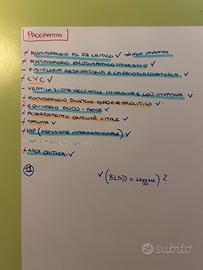 PROGRAMMA
- MONITORAGGIO AL PZ CRITICO ✓ → NON INVASIVO
- MONITORAGGIO EMODINAMICO INVASIVO ✓
- FISIOLOGIA RESPIRATORIA E CARDIOCIRCOLATORIA ✓
- CVC ✓
- VENTILAZIONE MECCANICA (INVASIVA E NON INVASIVA) ✓
- MONITORAGGIO BILANCIO IDROELETTROLITICO ✓
- EQUILIBRIO ACIDO - BASE ✓
- ACCERTAMENTO CRITICITÀ VITALE ✓
- TRAUMA ✓
- IAP (PRESSIONE INTRADDOMINALE) ✓
- AREA CRITICA ✓
✓ (BLSD = leggere) ?
subito